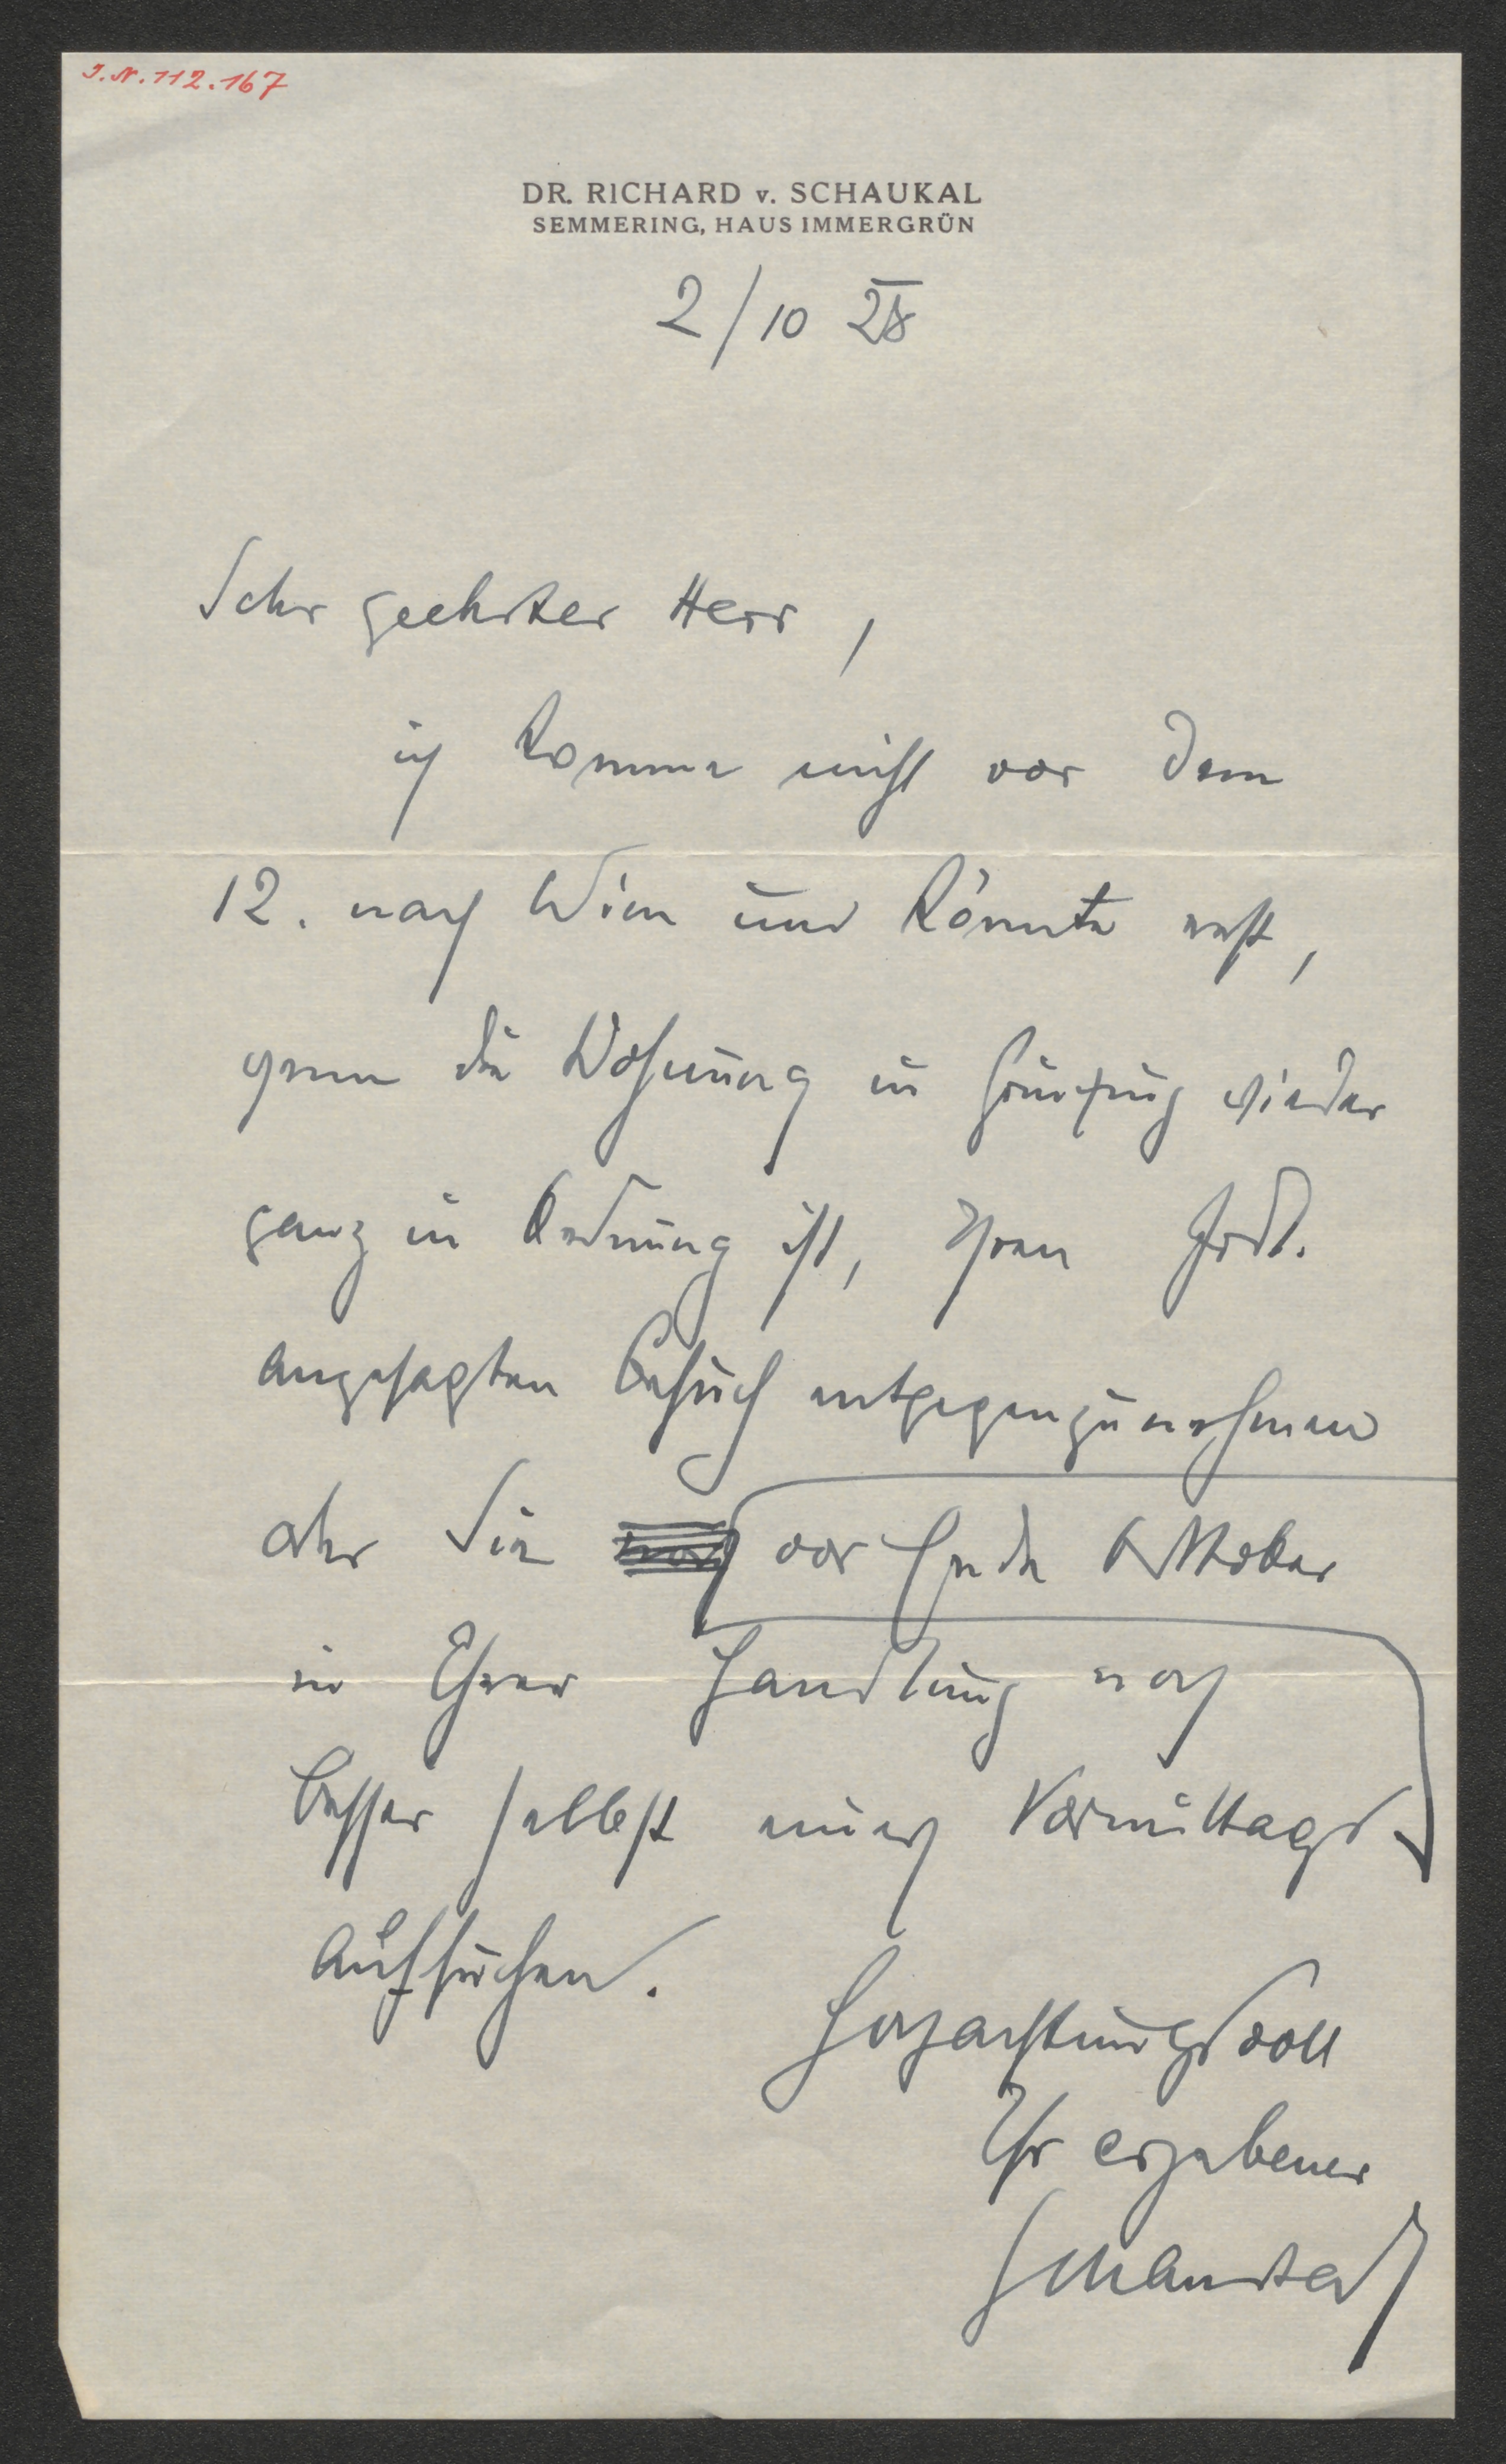 I.N. 112.167
DR. RICHARD v. SCHAUKAL
SEMMERING, HAUS IMMERGRÜN
2/10 28
Sehr geehrter Herr,
ich komme nicht vor dem
12. nach Wien und könnte erst,
wenn die Wohnung in Grinzing wieder
ganz in Ordnung ist, Ihren frdl.
angesagten Besuch entgegenzunehmen
oder Sie vor Ende Oktober
in Ihrer Handlung noch
besser selbst eines Vormittags
aufsuchen.
Hochachtungsvoll
Ihr ergebener
Schaukal